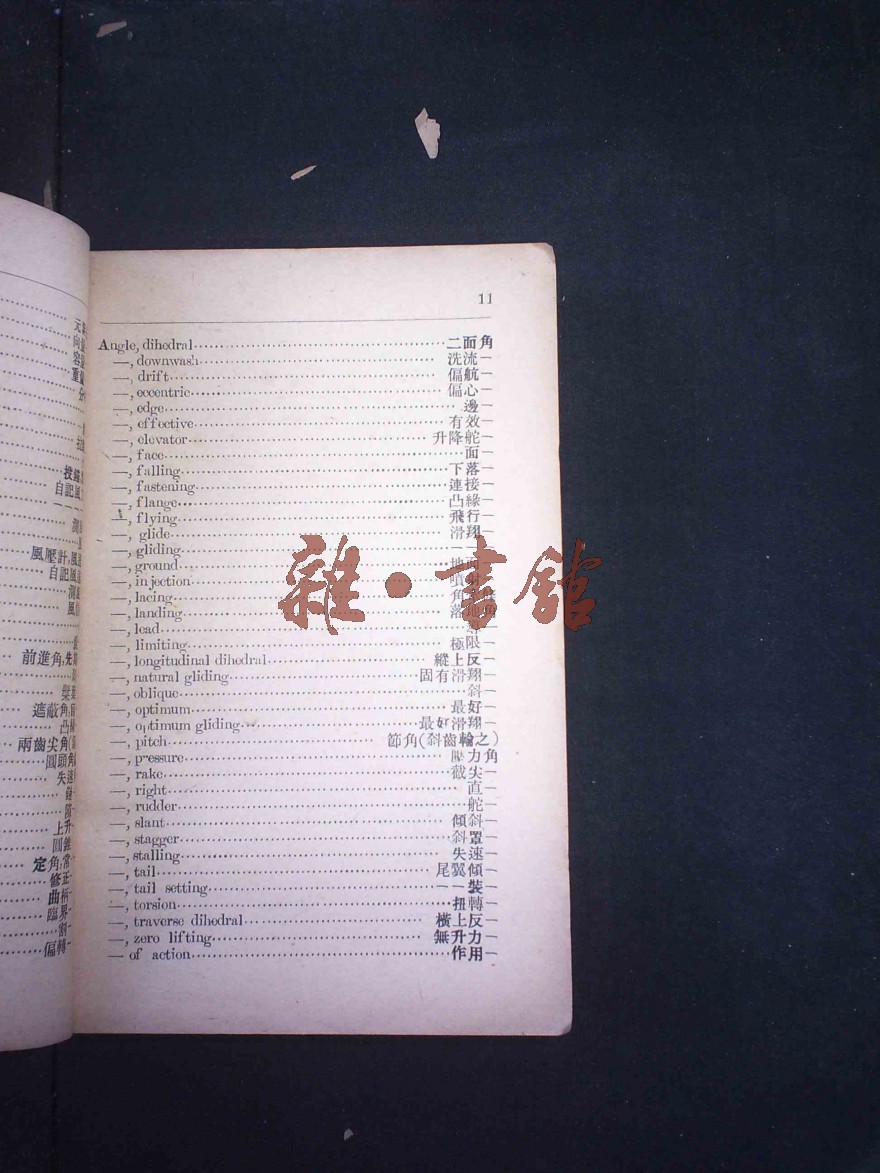 11
Angle, dihedral 二面角
—, downwash 洗流—
—, drift 偏航—
—, eccentric 偏心—
—, edge 邊—
—, effective 有效—
—, elevator 升降舵—
—, face 面—
—, falling 下落—
—, fastening 連接—
—, flange 凸緣—
—, flying 飛行—
—, glide 滑翔—
—, gliding — —
—, ground 地面
—, injection 噴
—, lacing 角
—, landing 落地角
—, lead
—, limiting 極限—
—, longitudinal dihedral 縱上反—
—, natural gliding 固有滑翔—
—, oblique 斜—
—, optimum 最好—
—, optimum gliding 最好滑翔—
—, pitch 節角(斜齒輪之)
—, pressure 壓力角
—, rake 截尖—
—, right 直—
—, rudder 舵—
—, slant 傾斜—
—, stagger 斜罩—
—, stalling 失速—
—, tail 尾翼傾—
—, tail setting — —裝—
—, torsion 扭轉—
—, traverse dihedral 橫上反—
—, zero lifting 無升力—
— of action 作用—
雜·書館
元
向
容
重
分
投
自記風
測
風壓計,風速
自記風
測
風
前進角,先
遮蔽角
凸
兩齒尖角
圓頭角
失速
上升
圓錐
定角,常
修正
曲柄
臨界
割
偏轉—